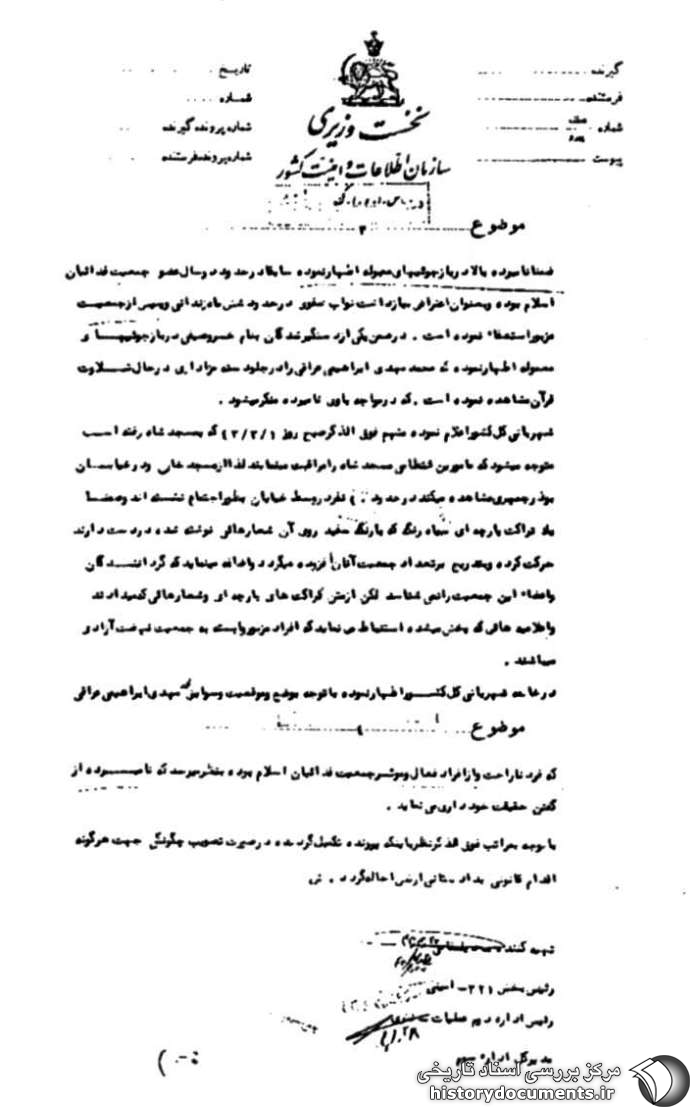 گیرنده
فرستنده
شماره
پیوست
تاریخ
شماره
شماره پرونده گیرنده
شماره پرونده فرستنده
نخست وزیری
سازمان اطلاعات و امنیت کشور
موضوع ۳
ضمنا نامبرده بالا در بازجوئیهای معموله اظهار نموده سابقا در حدود دو سال عضو جمعیت فدائیان
اسلام بوده و بعنوان اعتراض ببازداشت نواب صفوی در حدود شش ماه زندانی و سپس از جمعیت
مزبور استعفاء نموده است . در ضمن یکی از دستگیرشدگان بنام خسروصفی در بازجوئیها و
معموله اظهار نموده که محمد مهدی ابراهیمی عراقی را در جلو دسته عزاداری در حال تلاوت
قرآن مشاهده نموده است . که در مواجهه باوی نامبرده منکر میشود .
شهربانی کل کشور اعلام نموده متهم فوق الذکر صبح روز ۴۲/۳/۱ که بمسجد شاه رفته است
متوجه میشود که مامورین انتظامی مسجد شاه را مراقبت مینمایند لذا از مسجد خارج و در خیابان
بوذرجمهری مشاهده میکند در حدود نفر در وسط خیابان بطور اجتماع نشسته اند و ضمنا
پلاکارت پارچه ای سیاه رنگ که با رنگ سفید روی آن شعارهائی نوشته شده در دست دارند
حرکت کرده و بتدریج بر تعداد جمعیت آنان افزوده میگردد و اضافه مینماید که گردانندگان
واعضاء این جمعیت را نمی شناسد لکن از متن پلاکارت های پارچه ای و شعارهائی که میدادند
و اعلامیه هائی که پخش میشده استنباط می نماید که افراد مزبور وابسته به جمعیت نهضت آزادی
میباشند .
در خاتمه شهربانی کل کشور اظهار نموده با توجه بوضع و موقعیت و سوابق که مهدی ابراهیمی عراقی
موضوع ۴
که فرد ناراحت و از افراد فعال و موثر جمعیت فدائیان اسلام بوده بنظر میرسد که نامبرده از
گفتن حقیقت خودداری می نماید .
با توجه بمراتب فوق الذکر نظر باینکه پرونده تکمیل گردیده در صورت تصویب چگونگی جهت هرگونه
اقدام قانونی بدادستانی ارتش احاله گردد .
تهیه کننده
رئیس بخش ۳۲۱ - امینی
رئیس اداره دوم عملیات
مدیر کل اداره سوم
مرکز بررسی اسناد تاریخی
historydocuments.ir